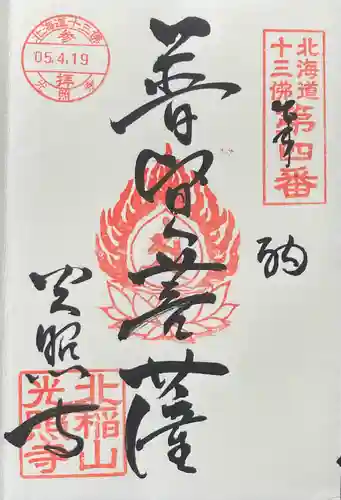 北海道
十三佛
第四番
奉
納
普賢菩薩
北海道十三佛
参
05.4.19
拝
光照寺
光照寺
北稲山
光照寺